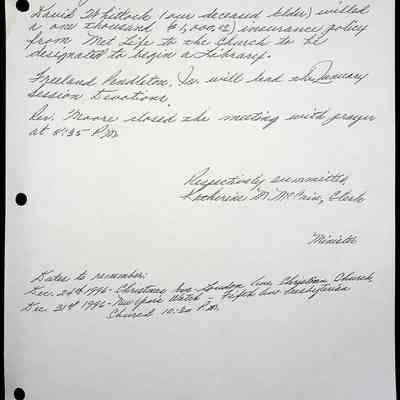 David Whitlock (our deceased Elder) willed
a one thousand $1,000.00) insurance policy
from Met Life to the Church to be
designated to begin a Library.
Freeland Pendleton, Jr. will lead the January
Session Devotions.
Rev. Moore closed the meeting with prayer
at 8:35 P.M.
Respectively submitted,
Katherine M. McCain, Clerk
Minister
Dates to remember:
Dec. 24th 1996 - Christmas Eve - Loudon Ave. Christian Church,
Dec. 31st 1996 - New Years Watch - Fifth Ave Presbyterian
Church 10:30 P.M.